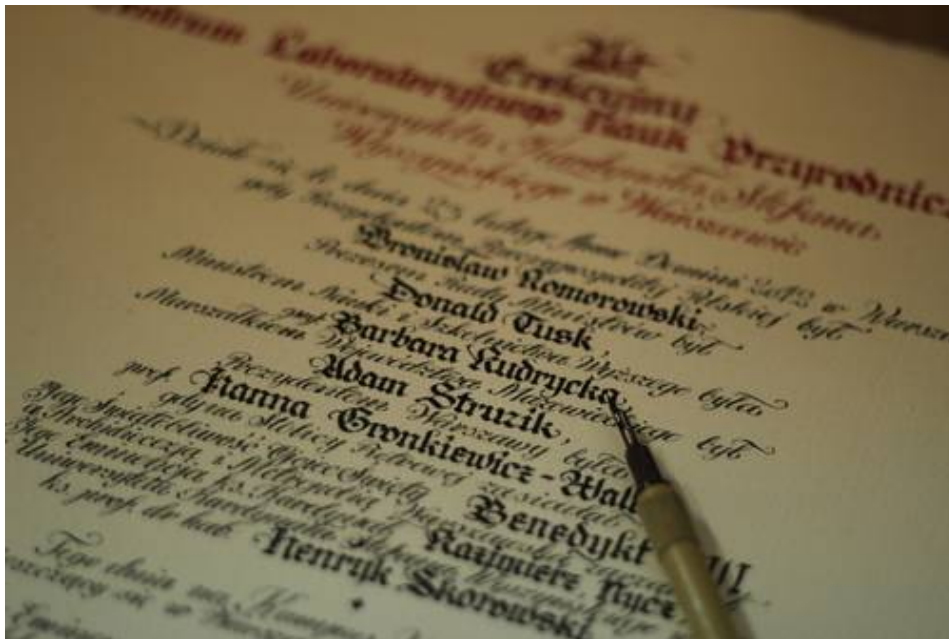 Akt
Erekcyjny
Centrum Laboratoryjnego Nauk Przyrodnicz
Uniwersytetu Kardynała Stefana
Wyszyńskiego w Warszawie
Działo się to dnia 23 lutego Anno Domini 2012 w Warsza
gdy Prezydentem Rzeczypospolitej Polskiej był
Bronisław Komorowski,
Prezesem Rady Ministrów był
Donald Tusk,
Ministrem Nauki i Szkolnictwa Wyższego była
prof. Barbara Kudrycka,
Marszałkiem Województwa Mazowieckiego był
Adam Struzik,
Prezydentem Warszawy była
prof. Hanna Gronkiewicz-Wal
gdy na Stolicy Piotrowej zasiadał
Jego Świątobliwość Ojciec Święty Benedykt
a Archidiecezją
Jego Eminencja ks. Kardynał Kazimierz Nycz
Uniwersytetu Kardynała Stefana Wyszyńskiego
ks. prof. dr hab. Henryk Skorowski
Tego dnia na Kampus
się w